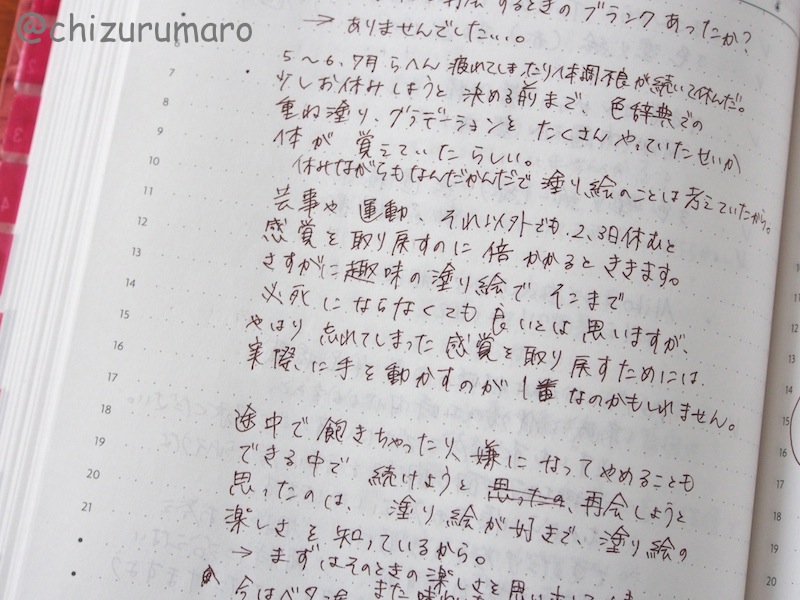 @chizurumaro
するときの ブランク あったか?
→ ありませんでした…。
・5〜6、7月らへん 疲れてしまったり体調不良が続いて休んだ。
少しお休みしようと 決める前まで、色辞典での
重ね塗り、グラデーションを たくさん やっていたせいか
体が 覚えていたらしい。
休みながらもなんだかんだで 塗り絵のことは 考えていたから。
芸事や 運動、それ以外でも、2、3日休むと
感覚を取り戻すのに 倍かかるとききます。
さすがに趣味の塗り絵で そこまで
必死にならなくても 良いとは 思いますが、
やはり 忘れてしまった 感覚を取り戻すためには
実際に手を動かすのが 1番 なのかもしれません。
途中で 飽きちゃったり、嫌に なってやめることも
できる中で 続けようと 思ったの、再会しようと
思ったのは、塗り絵が好きで、塗り絵の
楽しさを知っているから。
→ まずはそのときの楽しさを思い
今はベタ塗
また
6
7
8
9
10
11
12
13
14
15
16
17
18
19
20
21
2
3
4
10
11
12
13
14
15
16
17
18
19
20